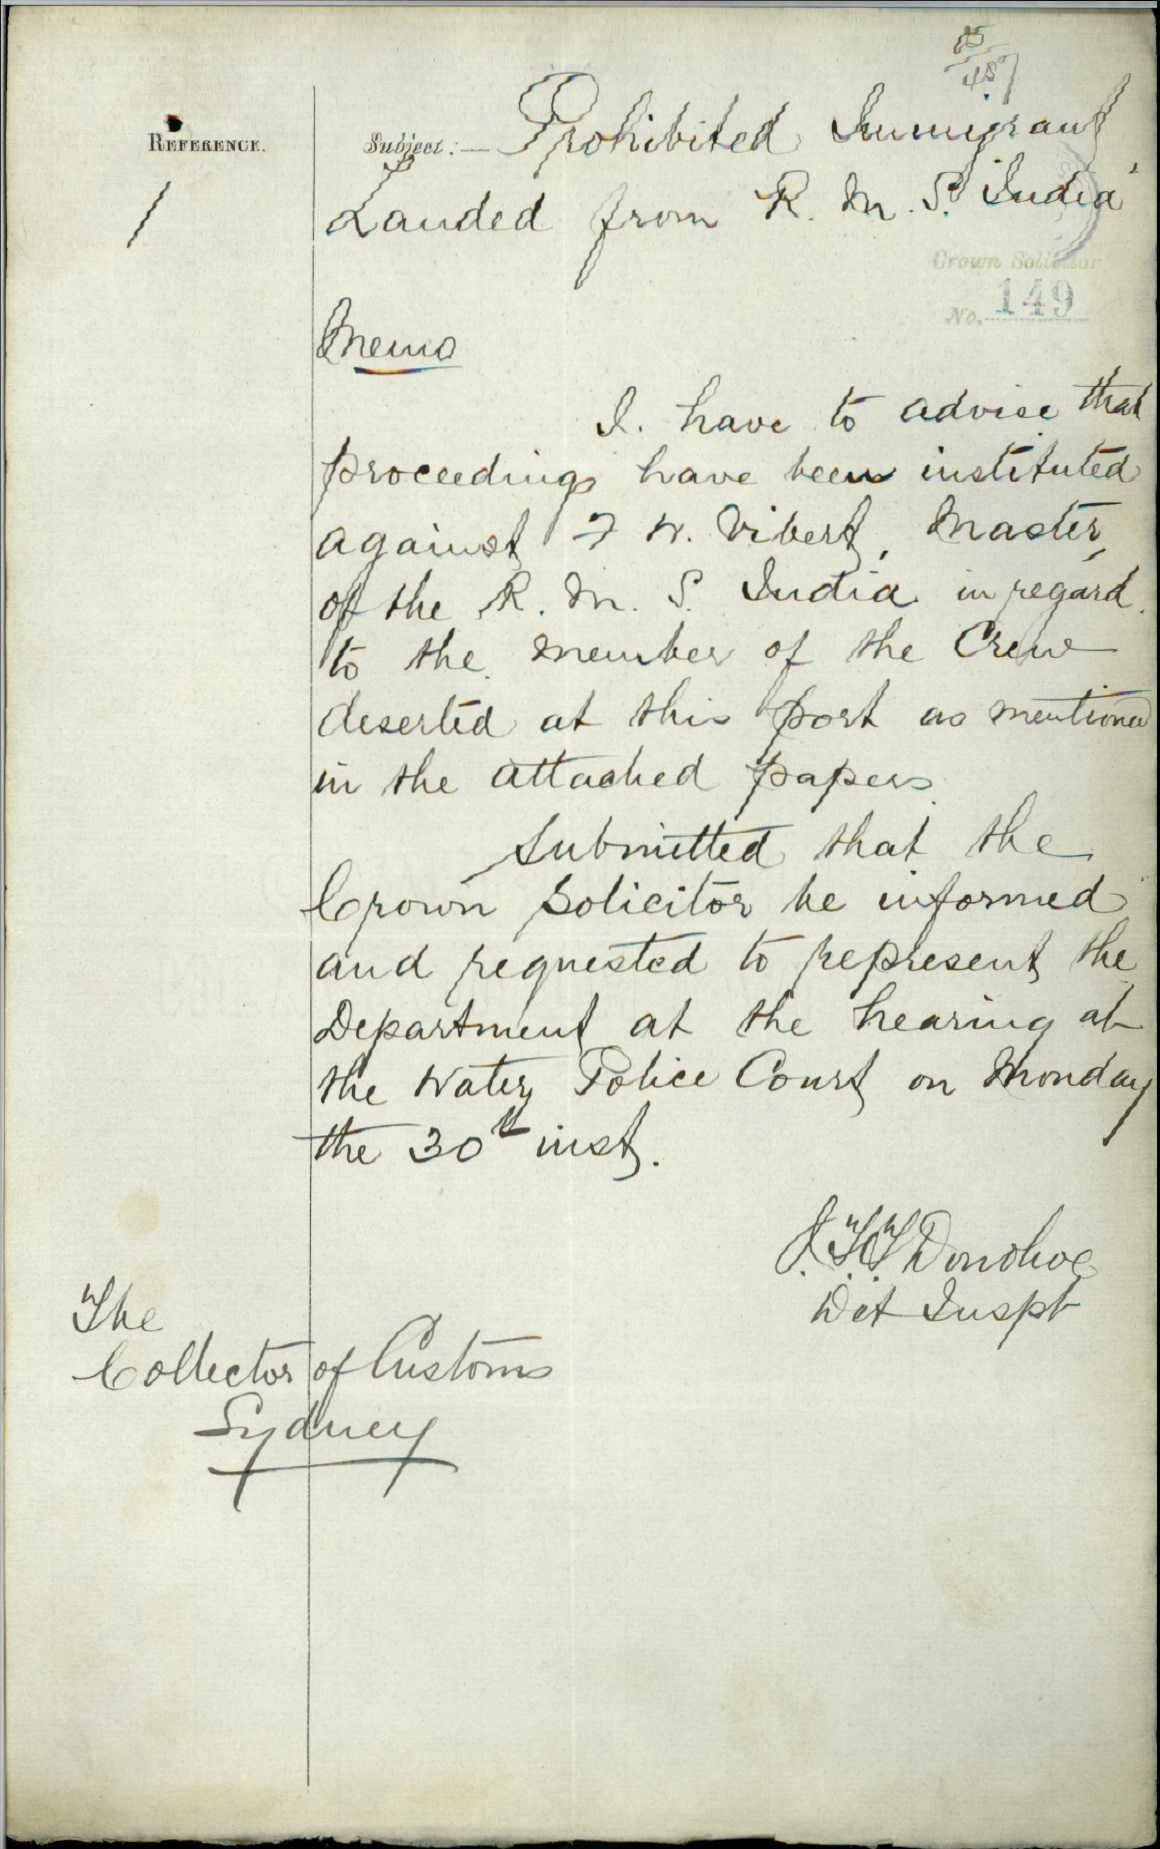 05
REFERENCE.
Subject:— Prohibited Immigrant
1
Landed from R. M. S. India
Crown Solicitor
No. 149
Memo
I have to advise that
proceedings have been instituted
against F W. Vibert, Master,
of the R. M. S. India in regard
to the member of the Crew
deserted at this port as mentioned
in the attached papers
Submitted that the
Crown Solicitor be informed
and requested to represent the
Department at the hearing at
the Water Police Court on Monday
the 30th inst.
J.T.T. Donohoe
Det Inspt
The
Collector of Customs
Sydney